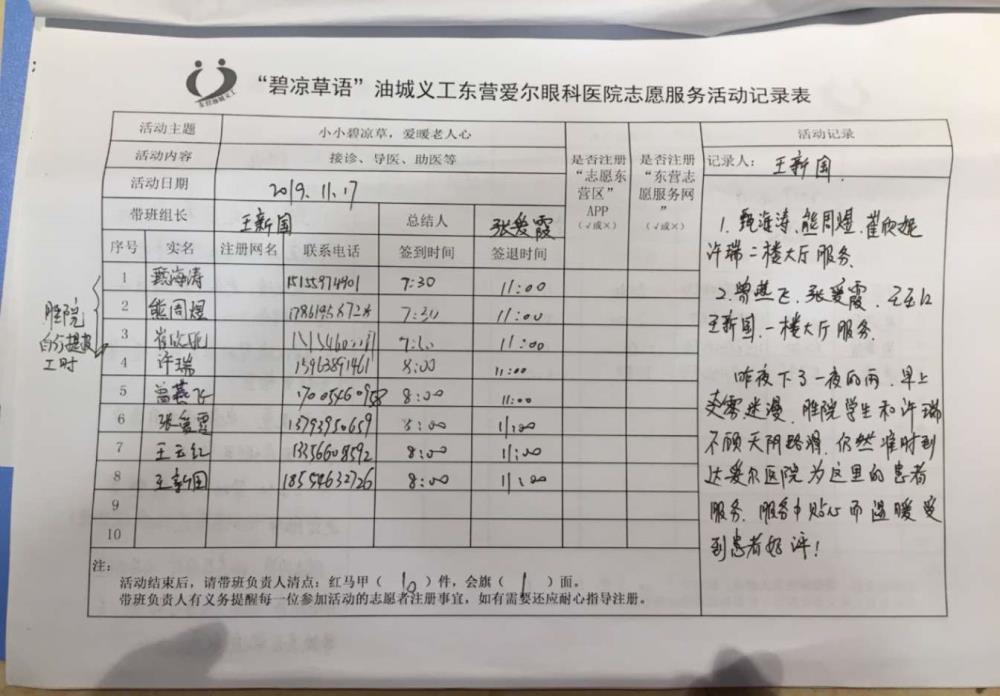 “碧凉草语”油城义工东营爱尔眼科医院志愿服务活动记录表
东营油城义工
活动主题 小小碧凉草，爱暖老人心
活动内容 接诊、导医、助医等
活动日期 2019.11.17
带班组长 王新国 总结人 张爱霞
序号 实名 注册网名 联系电话 签到时间 签退时间
是否注册“志愿东营区”APP（√或×）
是否注册“东营志愿服务网”（√或×）
1 甄海涛 15155974901 7:30 11:00
2 熊周煜 7:30 11:00
3 崔欣妮 11:00
4 许瑞 15963891461 8:00 11:00
5 曾燕飞 8:00 11:00
6 张爱霞 13793950659 8:00 11:00
7 王云红 13356608592 8:00 11:00
8 王新国 18554632726 8:00 11:00
9
10
胜院
工时
注：
活动结束后，请带班负责人清点：红马甲（10）件，会旗（1）面。
带班负责人有义务提醒每一位参加活动的志愿者注册事宜，如有需要还应耐心指导注册。
活动记录
记录人：王新国.
1.甄海涛、熊周煜、崔欣妮
许瑞二楼大厅服务.
2.曾燕飞、张爱霞、王云红
王新国.一楼大厅服务.
昨夜下了一夜的雨.早上
雾迷漫.胜院学生和许瑞
不顾天阴路滑.仍然准时到
达爱尔医院为这里的患者
服务.服务中贴心而温暖受
到患者好评！